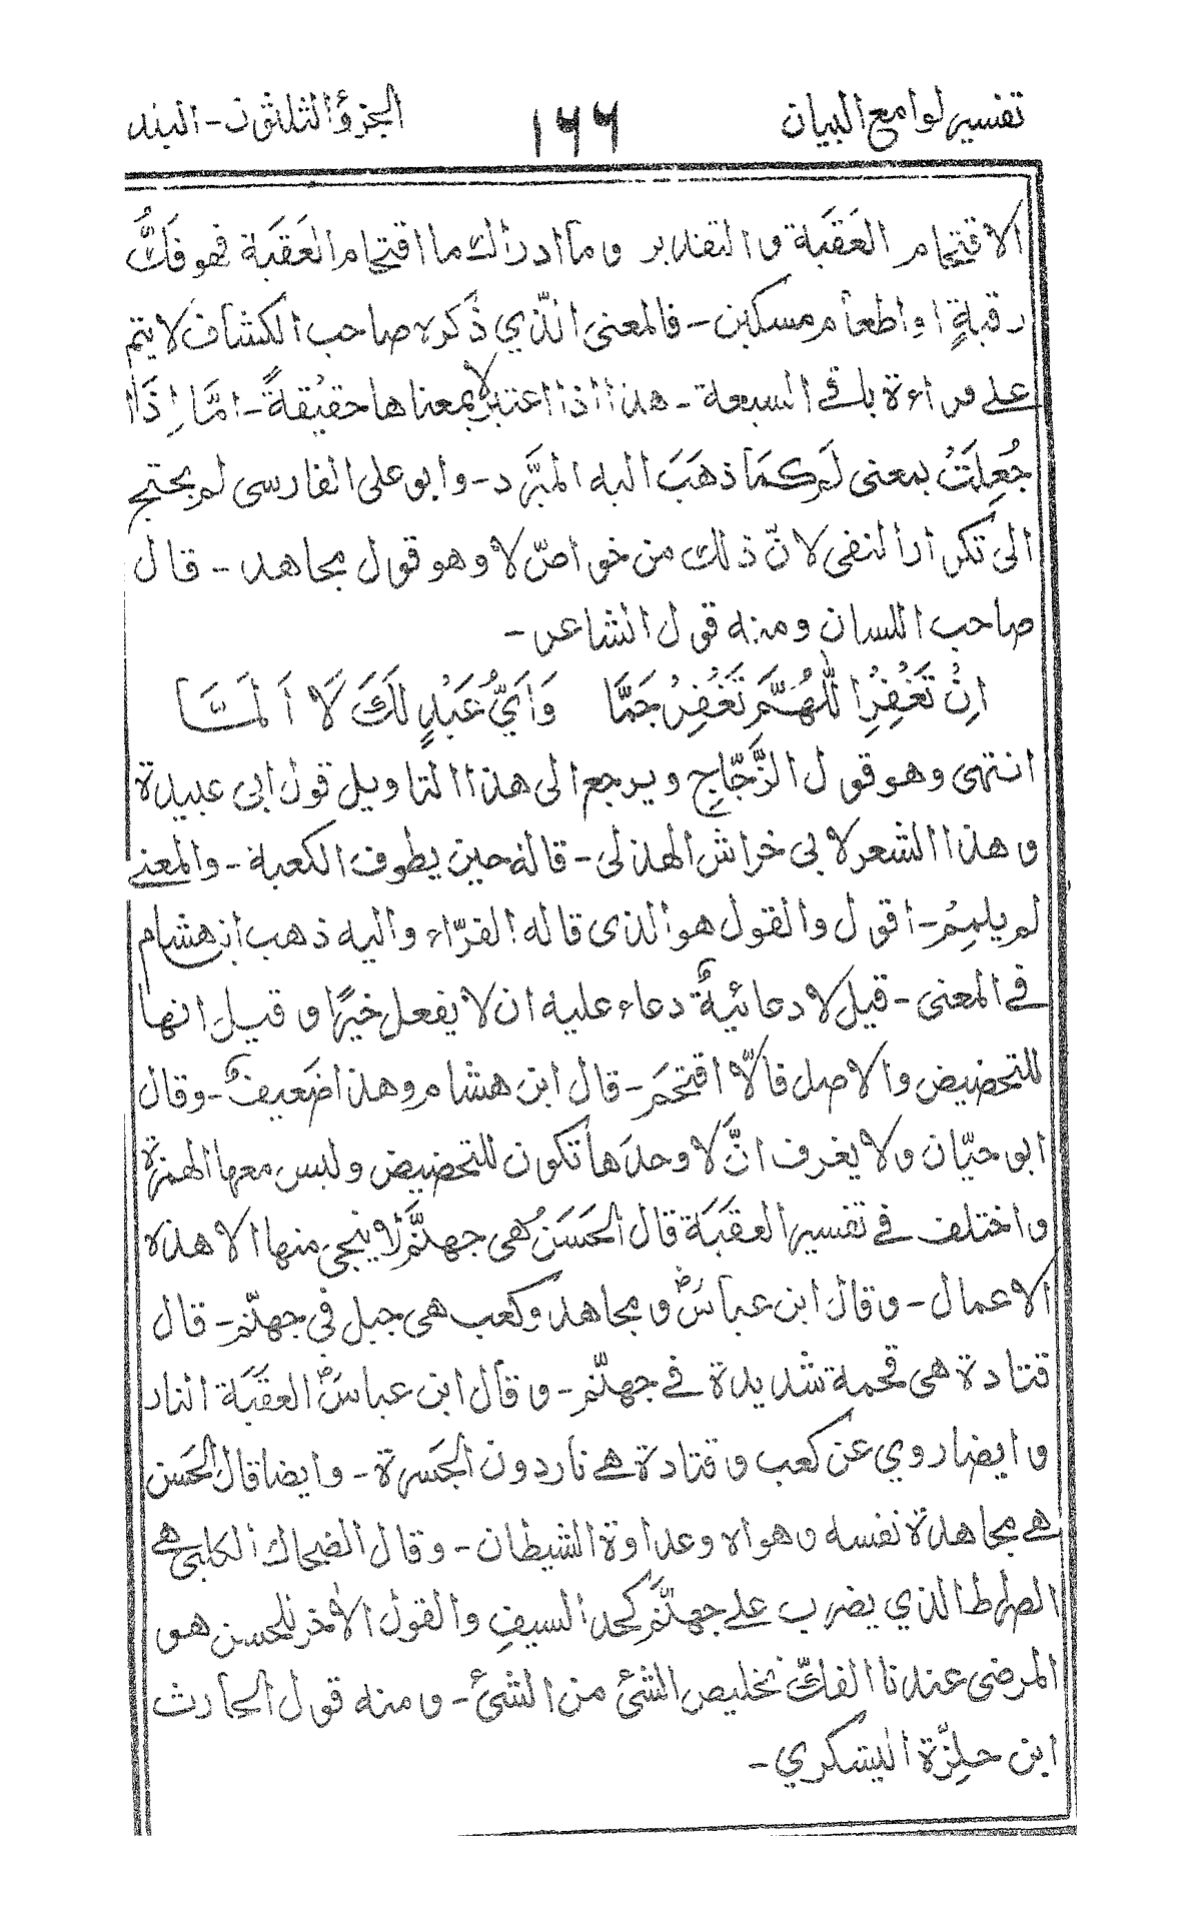 تفسير لوامع البيان ١٦٦ الجزؤ الثلثون - البلد
الاقتحام العَقَبَة والتقدير وما ادراك ما اقتحام العَقَبَة فهو فَكُّ
رقبةٍ او اطعام مسكين - فالمعنى الّذي ذَكره صاحب الكشاف لا يتم
على قراءة باقي السبعة - هذا اذا اعتبر لا بمعناها حقيقةً - امَّا اِذَا
جُعِلَتْ بمعنى لَم كمَا ذهَبَ اليه المبَّرد - وابو على الفارسى لم يحتج
الى تكرار النفى لانّ ذلك من خواصّ لا وهو قول مجاهد - قال
صاحب اللسان ومنه قول الشاعر -
اِنْ تَغْفِرِ اللّٰهُمَّ تَغْفِرْ جَمَّا وَاَيُّ عَبْدٍ لَكَ لَا اَلَمَّا
انتهى وهو قول الزَّجَّاجِ ويرجع الى هذا التاويل قول ابى عبيدة
وهذا الشعر لابي خراش الهذلى - قاله حين يطوف الكعبة - والمعنى
لم يلمِمْ - اقول والقول هو الذى قاله الفرّاء واليه ذهب ابن هشام
في المعنى - قيل لا دعائيةٌ دعاء عليه ان لا يفعل خيرًا و قيل انها
للتحضيض والاصل فالّا اقتحَمَ - قال ابن هشام وهذا ضَعيفٌ - وقال
ابو حيّان ولا يعرف انَّ لا وحدَها تكون للتحضيض وليس معها الهمزة
واختلف في تفسير العقَبَة قال الحَسَنُ هى جهنَّم لا ينجى منها الا هذه
الاعمال - وقال ابن عباسؓ ومجاهد وكعب هى جبل في جهنّم - قال
قتادة هى قحمة شديدة في جهنّم - وقال ابن عباسؓ العقَبَة النار
وايضا روي عن كعب وقتادة هے نار دون الجَسرة - وايضا قال الحَسن
هے مجاهدة نفسه وهواه وعداوة الشيطان - وقال الضحاك الكلبى هے
الصّراط الذي يضرب على جهنّم كحد السيفِ والقول الأخر للحسن هو
المرضى عندنا الفكّ تخليص الشئ من الشئ - ومنه قول الحارث
ابن حلِزّة اليشكري -